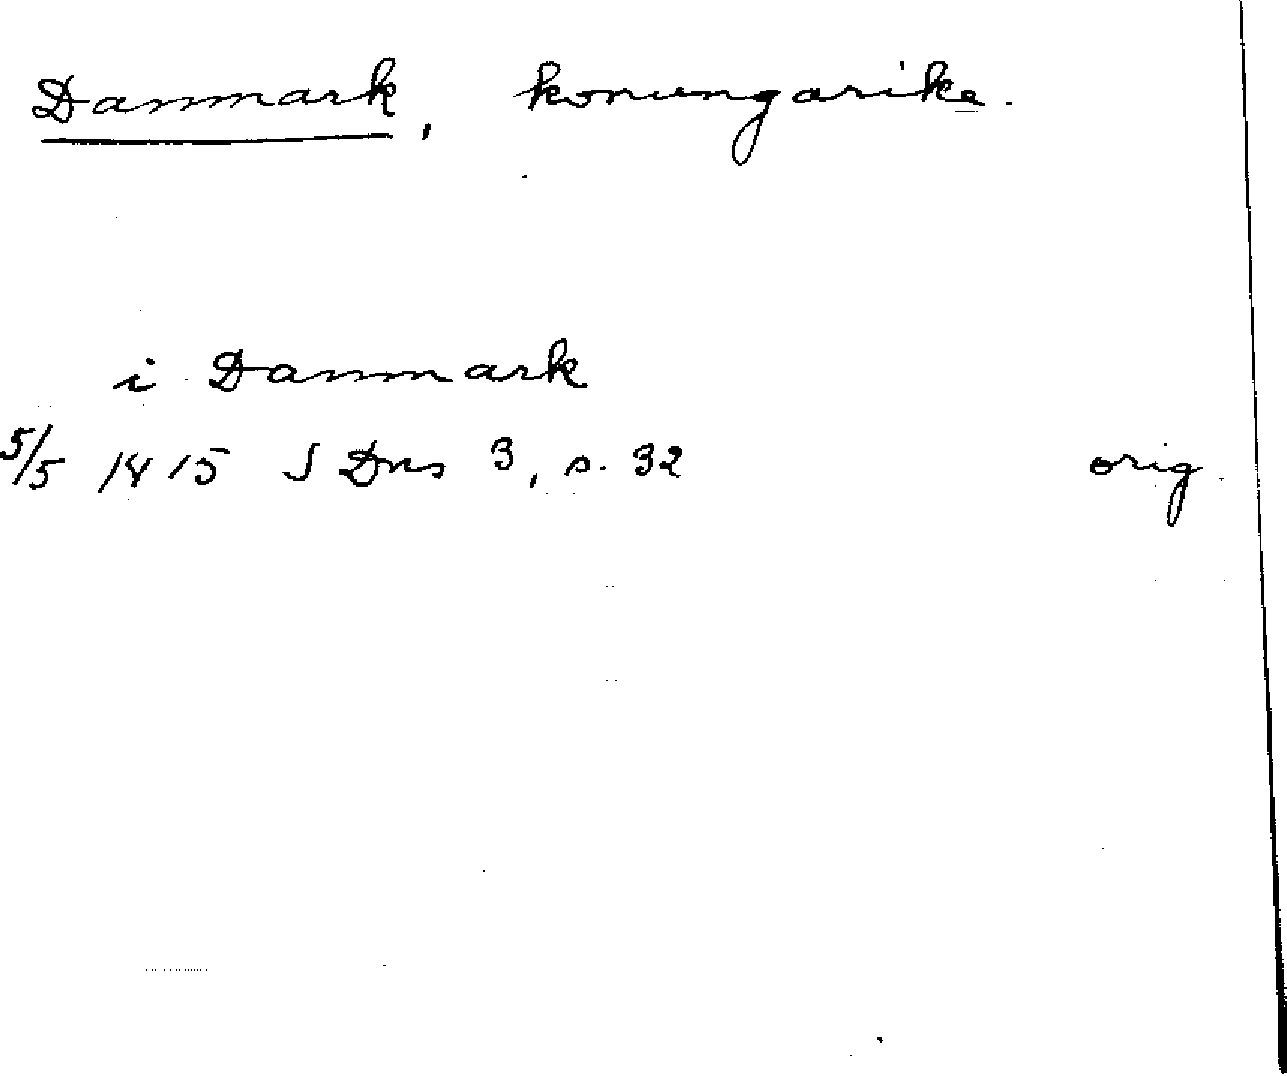 Danmark, konungarike.
i Danmark
5/5 1415 SDns 3, s. 32 orig.